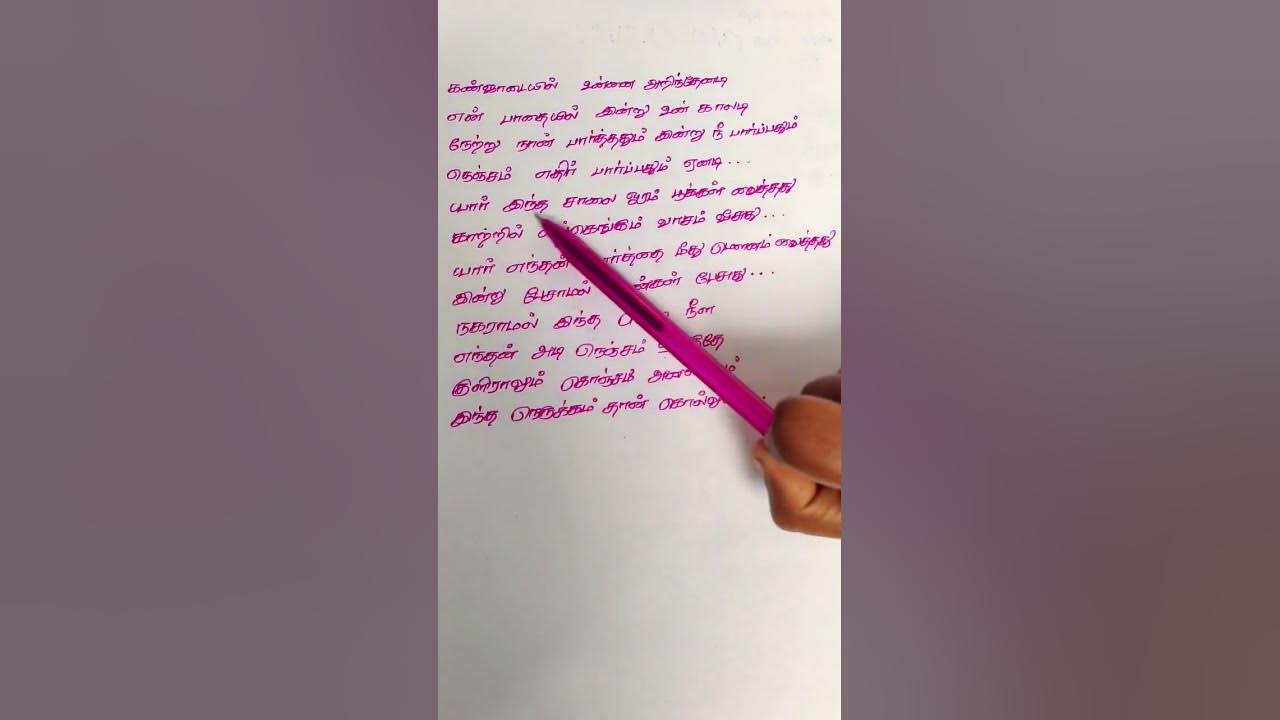 கண்ஜாடையில் உன்னை அறிந்தேனடி
என் பாதையில் இன்று உன் காலடி
நேற்று நான் பார்த்ததும் இன்று நீ பார்ப்பதும்
நெஞ்சம் எதிர் பார்ப்பதும் ஏனடி...
யார் இந்த சாலை ஓரம் பூக்கள் வைத்தது
காற்றில் வாசம் வீசுது...
யார் எந்தன் மீது மௌனம் வைத்தது
இன்று பேசாமல் பேசுது...
நகராமல் இந்த நீள
எந்தன் அடி நெஞ்சம்
குளிராலும் கொஞ்சம்
இந்த நெருக்கம் தான்